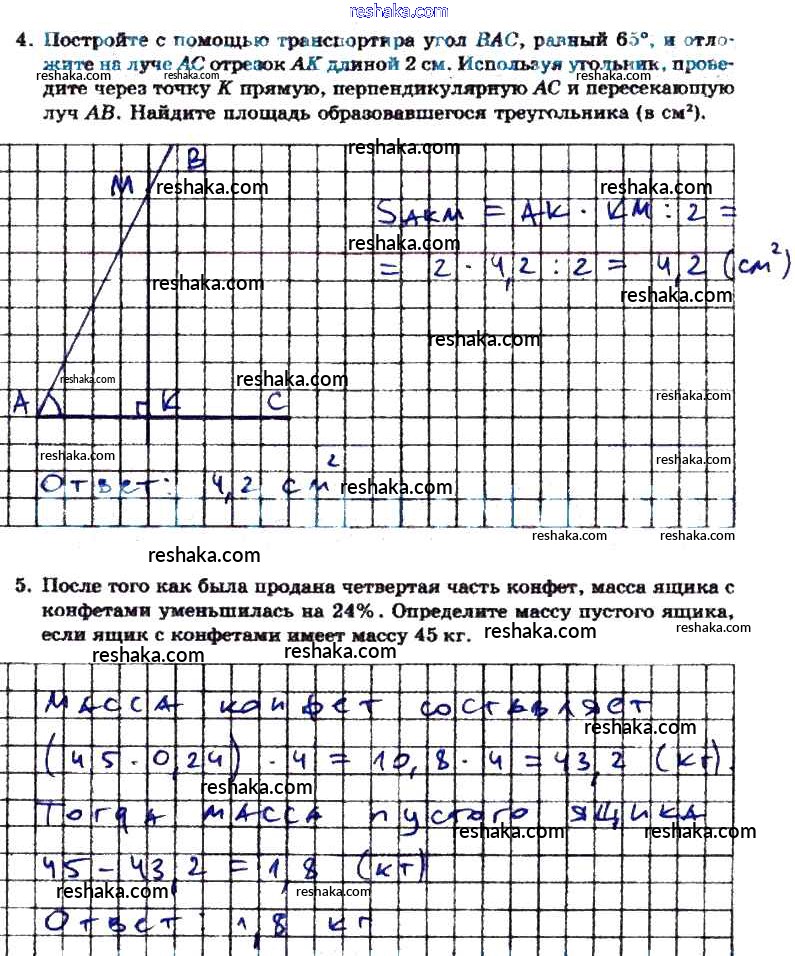 reshaka.com
4. Постройте с помощью транспортира угол BAC, равный 65°, и отло-
жите на луче AC отрезок AK длиной 2 см. Используя угольник, прове-
reshaka.com reshaka.com reshaka.com reshaka.com
дите через точку K прямую, перпендикулярную AC и пересекающую
луч AB. Найдите площадь образовавшегося треугольника (в см²).
reshaka.com
B
M reshaka.com reshaka.com
S AKM = AK · KM : 2 =
reshaka.com
= 2 · 4,2 : 2 = 4,2 (см²)
reshaka.com reshaka.com
reshaka.com
reshaka.com reshaka.com reshaka.com
A K C
reshaka.com reshaka.com reshaka.com
Ответ: 4,2 см² reshaka.com
reshaka.com reshaka.com
reshaka.com
5. После того как была продана четвертая часть конфет, масса ящика с
конфетами уменьшилась на 24%. Определите массу пустого ящика,
если ящик с конфетами имеет массу 45 кг. reshaka.com reshaka.com
reshaka.com reshaka.com
Масса конфет составляет
reshaka.com
(45 · 0,24) · 4 = 10,8 · 4 = 43,2 (кг).
reshaka.com
Тогда масса пустого ящика
reshaka.com reshaka.com
45 - 43,2 = 1,8 (кг)
reshaka.com reshaka.com
Ответ: 1,8 кг